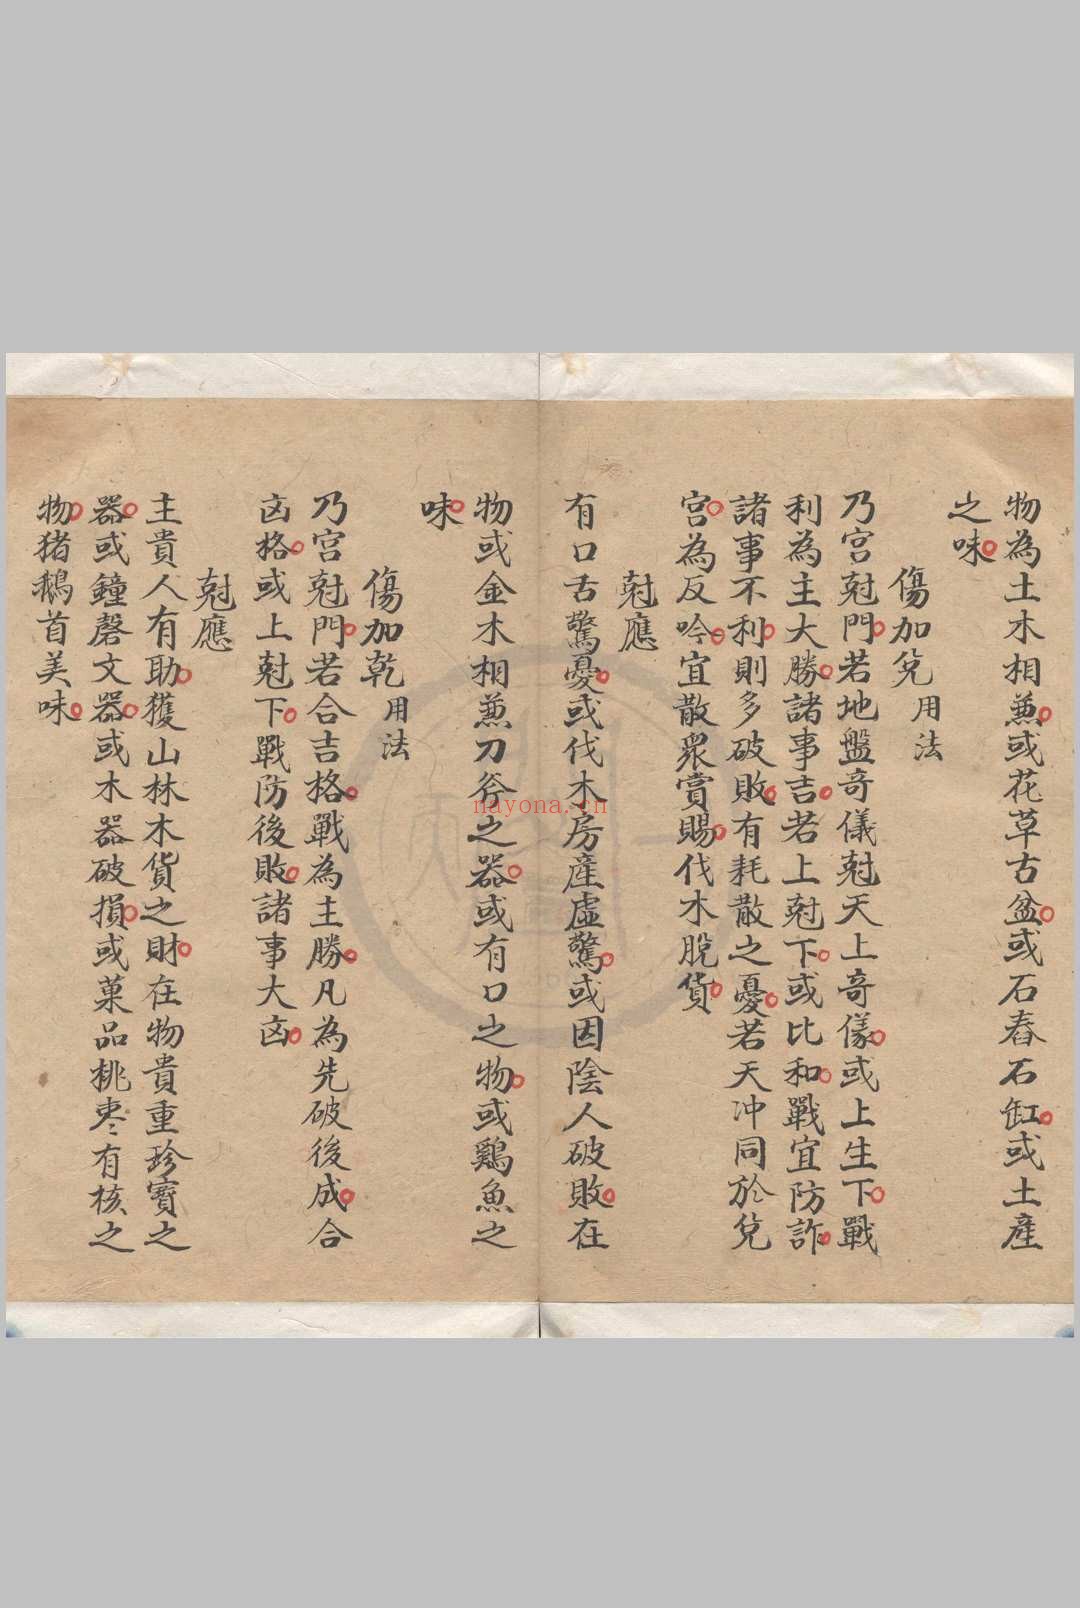 物為土木相兼或花草古盆或石舂石缸或土產
之味
傷加兌 用法
乃宮尅門若地盤奇儀尅天上奇儀或上生下戰
利為主大勝諸事吉若上尅下或比和戰宜防詐
諸事不利則多破敗有耗散之憂若天冲同於兌
宮為反吟宜散眾賞賜伐木脫貨
尅應
有口舌驚憂或伐木房產虛驚或因陰人破敗在
物或金木相兼刀斧之器或有口之物或鷄魚之
味
傷加乾 用法
乃宮尅門若合吉格戰為主勝凡為先破後成合
凶格或上尅下戰防後敗諸事大凶
尅應
主貴人有助獲山林木貨之財在物貴重珍寶之
器或鐘磬文器或木器破損或菓品桃枣有核之
物猪鵝首美味
nayona.cn